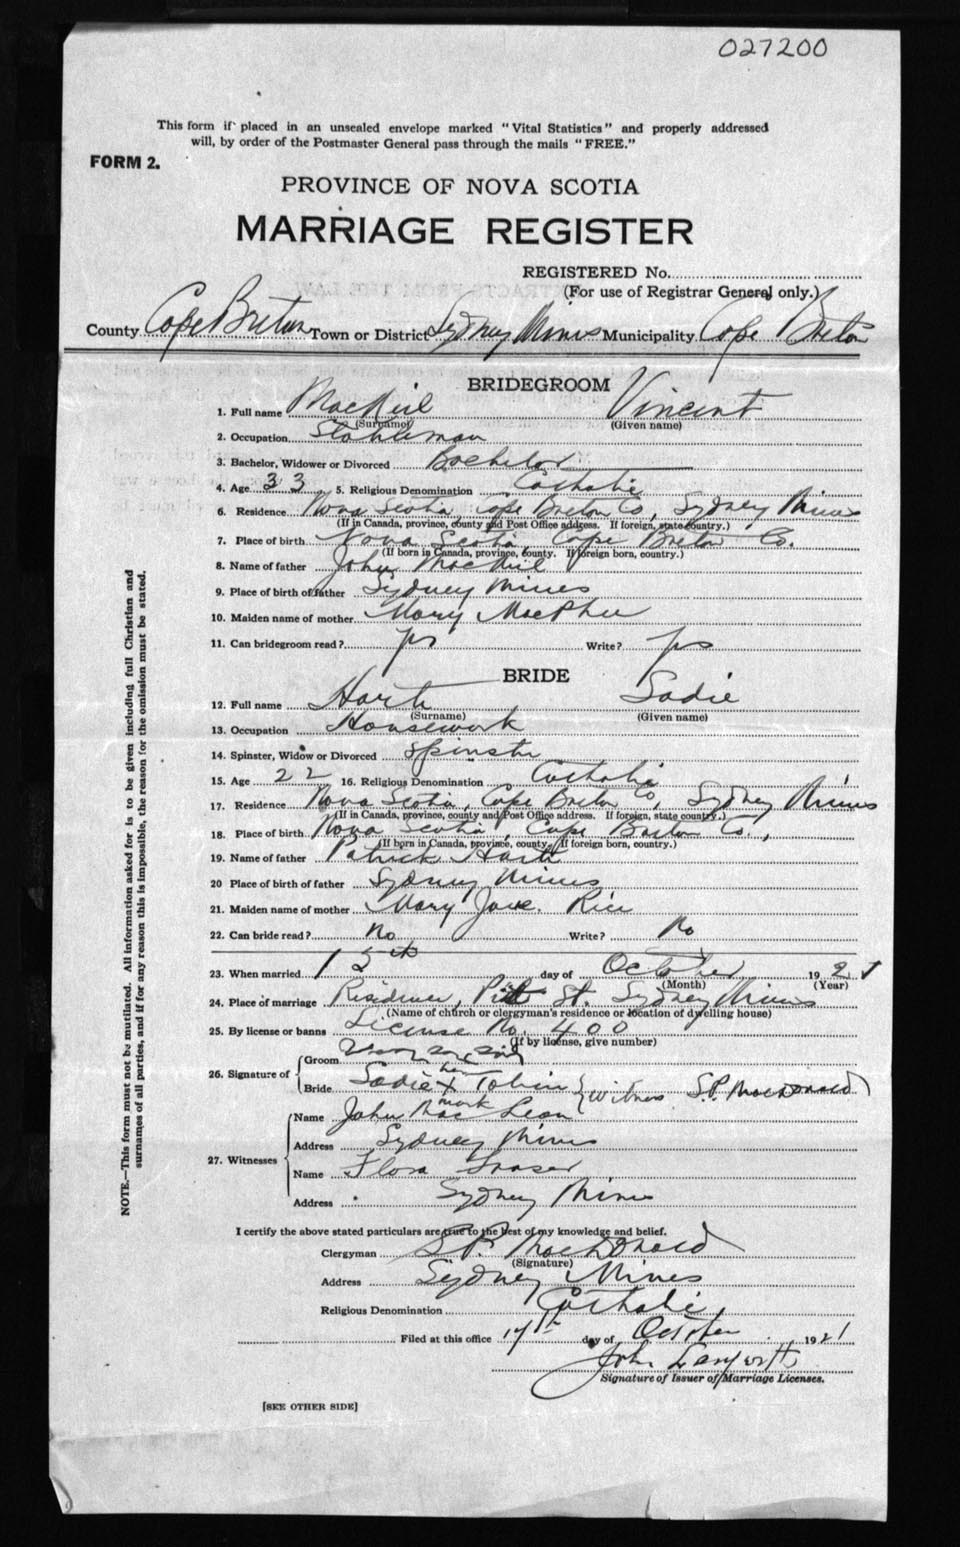 027200
This form if placed in an unsealed envelope marked "Vital Statistics" and properly addressed
will, by order of the Postmaster General pass through the mails "FREE."
FORM 2.
PROVINCE OF NOVA SCOTIA
MARRIAGE REGISTER
REGISTERED No.
(For use of Registrar General only.)
County Cape Breton Town or District Sydney Mines Municipality Cape Breton
BRIDEGROOM
1. Full name MacNeil Vincent
(Surname) (Given name)
2. Occupation Stableman
3. Bachelor, Widower or Divorced Bachelor
4. Age 33 5. Religious Denomination Catholic
6. Residence Nova Scotia, Cape Breton Co, Sydney Mines
(If in Canada, province, county and Post Office address. If foreign, state country.)
7. Place of birth Nova Scotia, Cape Breton Co.
(If born in Canada, province, county. If foreign born, country.)
8. Name of father John MacNeil
9. Place of birth of father Sydney Mines
10. Maiden name of mother Mary MacPhee
11. Can bridegroom read? yes Write? yes
BRIDE
12. Full name Hart Sadie
(Surname) (Given name)
13. Occupation Housework
14. Spinster, Widow or Divorced Spinster
15. Age 22 16. Religious Denomination Catholic
17. Residence Nova Scotia, Cape Breton Co, Sydney Mines
(If in Canada, province, county and Post Office address. If foreign, state country.)
18. Place of birth Nova Scotia, Cape Breton Co.,
(If born in Canada, province, county. If foreign born, country.)
19. Name of father Patrick Hart
20 Place of birth of father Sydney Mines
21. Maiden name of mother Mary Jane. Rice
22. Can bride read? No Write? No
23. When married 15th day of October 1921
(Month) (Year)
24. Place of marriage Residence, Pitt St. Sydney Mines
(Name of church or clergyman's residence or location of dwelling house)
25. By license or banns License No. 400
(If by license, give number)
26. Signature of Groom
Bride Sadie her X mark Tobin } witness S.P. MacDonald
27. Witnesses Name John MacLean
Address Sydney Mines
Name Flora Fraser
Address Sydney Mines
I certify the above stated particulars are true to the best of my knowledge and belief.
Clergyman S.P. MacDonald
(Signature)
Address Sydney Mines
Religious Denomination Catholic,
Filed at this office 17th day of October 1921
John
Signature of Issuer of Marriage Licenses.
[SEE OTHER SIDE]
NOTE.—This form must not be mutilated. All information asked for is to be given including full Christian and
surnames of all parties, and if for any reason this is impossible, the reason for the omission must be stated.